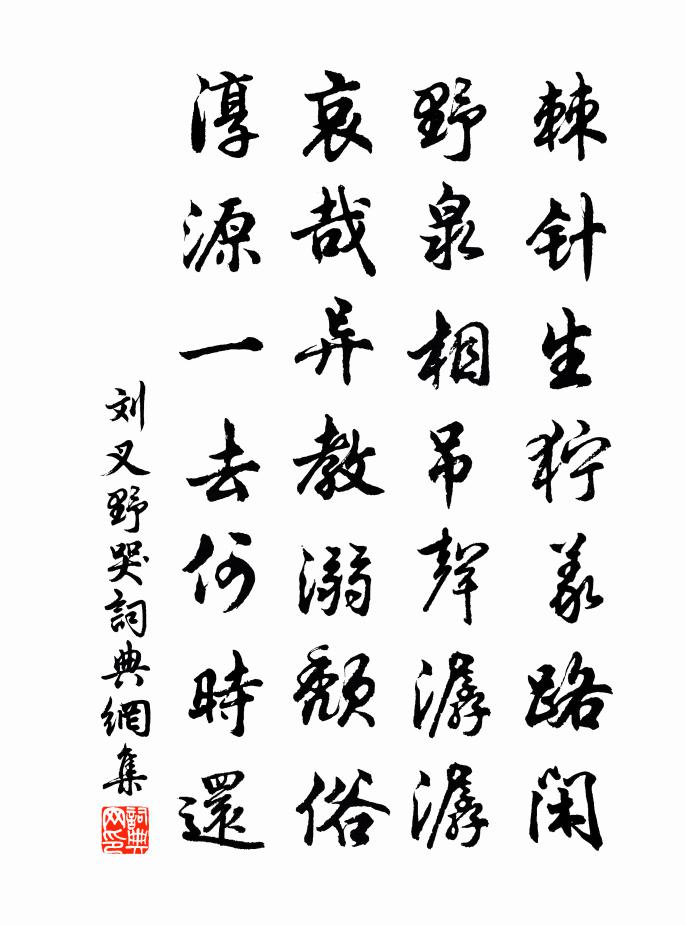 棘针生狞義路闲
野泉相吊聲潺潺
哀哉异教溺颓俗
淳源一去何時還
刘叉野哭詞典網集
詞典网印